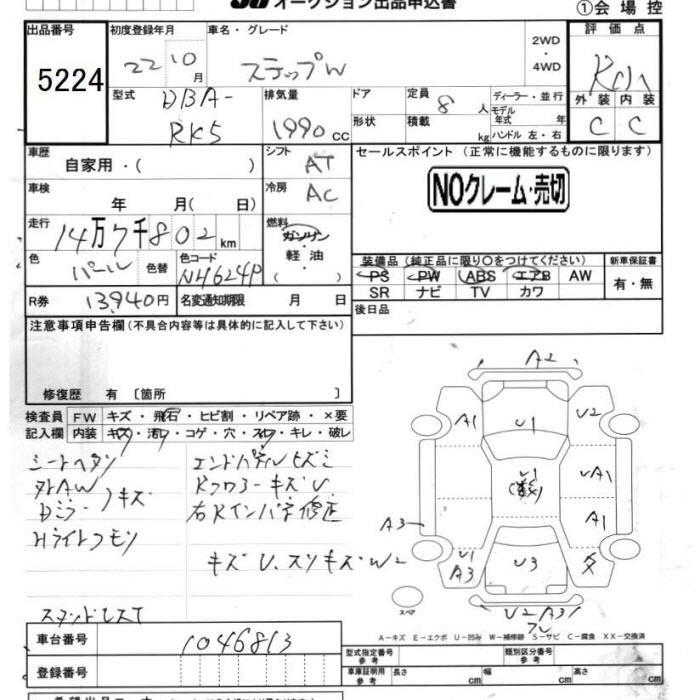 オークション出品申込書
①会場控
出品番号 初度登録年月 車名・グレード 2WD ・ 4WD 評価点
5224 22 10月 ステップW
外装 内装
C C
型式 DBA-RK5 排気量 1990cc ドア 形状 定員 8人 積載 kg ディーラー・並行 モデル年式 年 ハンドル 左・右
車歴 自家用・( ) シフト AT セールスポイント (正常に機能するものに限ります)
車検 年 月( 日) 冷房 AC NOクレーム・売切
走行 14万7千802km 燃料 ガソリン・軽油
装備品 (純正品に限り○をつけてください) 新車保証書
色 パール 色替 色コード NH624P PS PW ABS エアB AW 有・無
SR ナビ TV カワ
R券 13940円 名変通知期限 月 日 後日品
注意事項申告欄 (不具合内容等は具体的に記入して下さい)
修復歴 有 〔箇所 〕
検査員 FW キズ・飛石・ヒビ割・リペア跡・×要
記入欄 内装 キズ・汚れ・コゲ・穴・スレ・キレ・破レ
シートヘタリ
エンドパネルヒズミ
外AW
Rフロアーキズ U
Dミラー キズ
右Rインパネ修正
Hライトクモリ
キズ U、スリキズ W2
A2
A1 U1 U2
U1 UA1
A3 A1
U1 A3 U3
スペア
U2 A3
A-キズ E-エクボ U-凹み W-補修跡 S-サビ C-腐食 XX-交換済
車台番号 1046813
型式指定番号 参考 類別区分番号 参考
登録番号 車庫証明用 参考 長さ cm 幅 cm 高さ cm